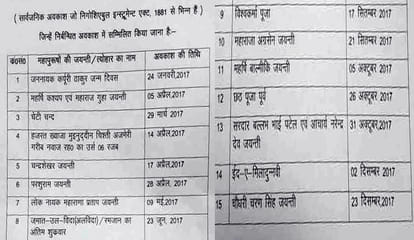 (सार्वजनिक अवकाश जो निगोशिएबुल इन्स्ट्रूमेन्ट एक्ट, 1881 से भिन्न हैं)
जिन्हें निर्बन्धित अवकाश में सम्मिलित किया जाना है:-
क्र०सं० महापुरूषों की जयन्ती/त्योहार का नाम अवकाश की तिथि
1 जननायक कर्पूरी ठाकुर जन्म दिवस 24 जनवरी,2017
2 महर्षि कश्यप एवं महाराज गुहा जयन्ती 05 अप्रैल,2017
3 चेटी चन्द 29 मार्च 2017
4 हजरत ख्वाजा मुइनुद्दीन चिश्ती अजमेरी गरीब नवाज रह0 का उर्स 06 रजब 14 अप्रैल,2017
5 चन्द्रशेखर जयन्ती 17 अप्रैल,2017
6 परशुराम जयन्ती 28 अप्रैल, 2017
7 लोक नायक महाराणा प्रताप जयन्ती 09 मई,2017
8 जमात-उल-विदा(अलविदा)/रमजान का अंतिम शुक्रवार 23 जून, 2017
9 विश्वकर्मा पूजा 17 सितम्बर 2017
10 महाराजा अग्रसेन जयन्ती 21 सितम्बर,2017
11 महर्षि बाल्मीकि जयन्ती 05 अक्टूबर,2017
12 छठ पूजा पर्व 26 अक्टूबर,2017
13 सरदार बल्लभ भाई पटेल एवं आचार्य नरेन्द्र देव जयन्ती 31 अक्टूबर,2017
14 ईद-ए-मिलादुन्नवी 02 दिसम्बर 2017
15 चौधरी चरण सिंह जयन्ती 23 दिसम्बर,2017